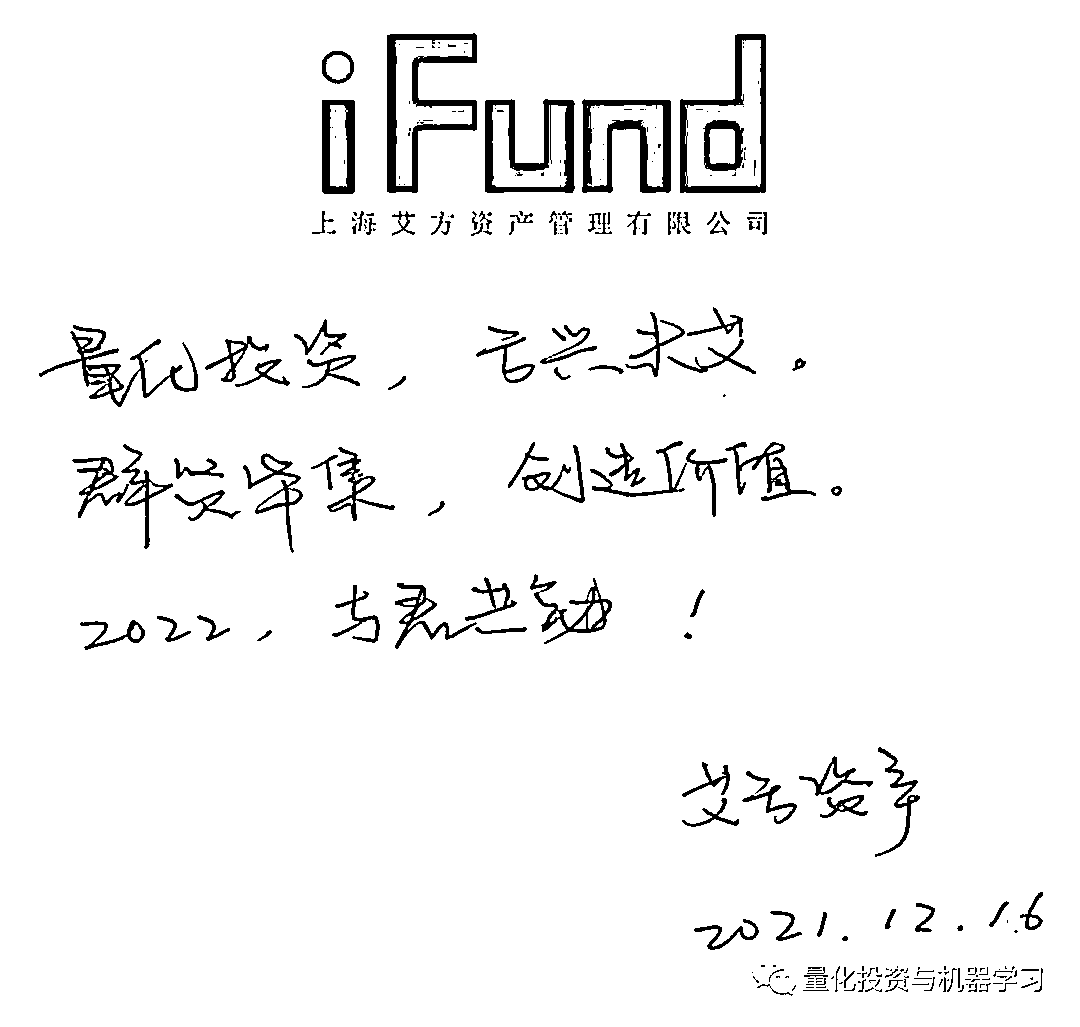 iFund
上海艾方资产管理有限公司
量化投资，方兴未艾。
群贤毕集，创造价值。
2022，与君共勉！
艾方资产
2021.12.16
量化投资与机器学习